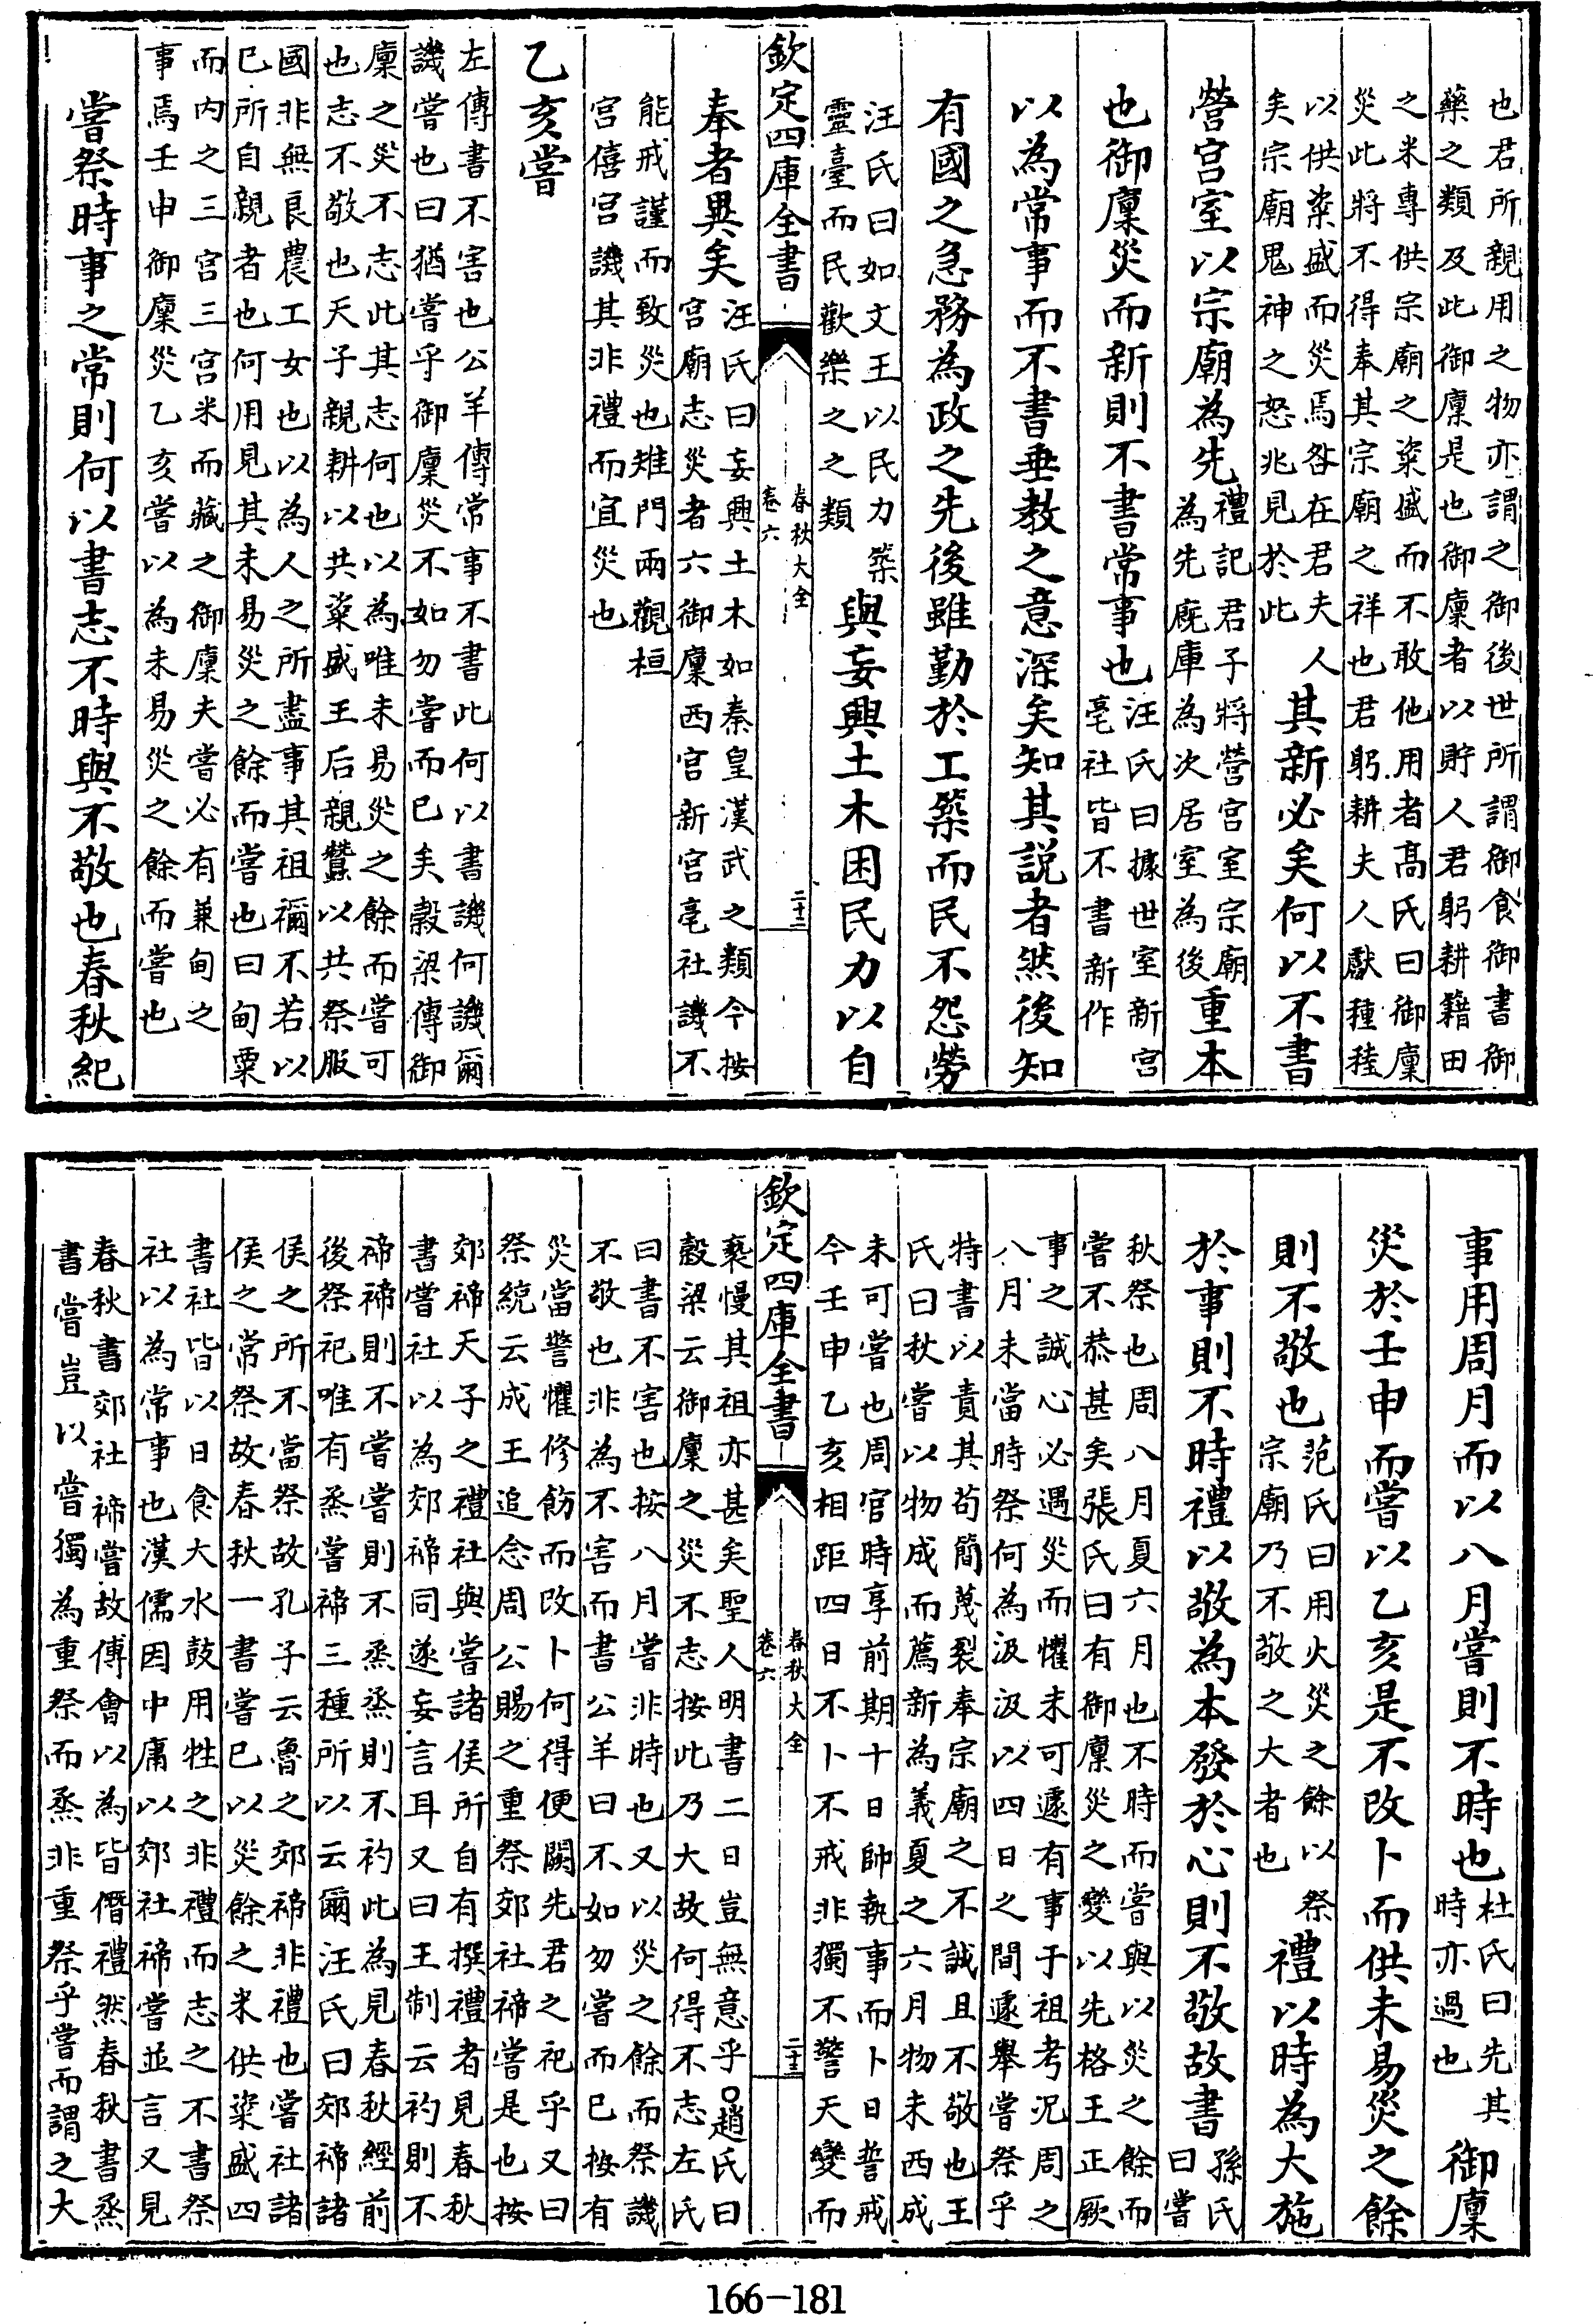 也君所親用之物亦謂之御後世所謂御食御書御
藥之類及此御廩是也御廩者以貯人君躬耕籍田
之米專供宗廟之粢盛而不敢他用者髙氏曰御廩
災此將不得奉其宗廟之祥也君躬耕夫人獻種稑
以供粢盛而災焉咎在君夫人
矣宗廟鬼神之怒兆見於此
其新必矣何以不書
營宫室以宗廟為先
禮記君子將營宫室宗廟
為先廐庫為次居室為後
重本
也御廩災而新則不書常事也
汪氏曰據世室新宫
亳社皆不書新作
以為常事而不書垂教之意深矣知其説者然後知
有國之急務為政之先後雖勤於工築而民不怨勞
汪氏曰如文王以民力築
靈臺而民歡樂之之類
與妄興土木困民力以自
欽定四庫全書
春秋大全
卷六
二十二
奉者異矣
汪氏曰妄興土木如秦皇漢武之類今按
宫廟志災者六御廩西宫新宫亳社譏不
能戒謹而致災也雉門兩觀桓
宫僖宫譏其非禮而宜災也
乙亥嘗
左傳書不害也公羊傳常事不書此何以書譏何譏爾
譏嘗也曰猶嘗乎御廩災不如勿嘗而已矣穀梁傳御
廩之災不志此其志何也以為唯未易災之餘而嘗可
也志不敬也天子親耕以共粢盛王后親蠶以共祭服
國非無良農工女也以為人之所盡事其祖禰不若以
已所自親者也何用見其未易災之餘而嘗也曰甸粟
而内之三宫三宫米而藏之御廩夫嘗必有兼甸之
事焉壬申御廩災乙亥嘗以為未易災之餘而嘗也
嘗祭時事之常則何以書志不時與不敬也春秋紀
事用周月而以八月嘗則不時也
杜氏曰先其
時亦過也
御廩
災於壬申而嘗以乙亥是不改卜而供未易災之餘
則不敬也
范氏曰用火災之餘以祭
宗廟乃不敬之大者也
禮以時為大施
於事則不時禮以敬為本發於心則不敬故書
孫氏
曰嘗
秋祭也周八月夏六月也不時而嘗與以災之餘而
嘗不恭甚矣張氏曰有御廩災之變以先格王正厥
事之誠心必遇災而懼未可遽有事于祖考况周之
八月未當時祭何為汲汲以四日之間遽舉嘗祭乎
特書以責其苟簡蔑裂奉宗廟之不誠且不敬也王
氏曰秋嘗以物成而薦新為義夏之六月物未西成
未可嘗也周官時享前期十日帥執事而卜日誓戒
今壬申乙亥相距四日不卜不戒非獨不警天變而
欽定四庫全書
春秋大全
卷六
二十三
䙝慢其祖亦甚矣聖人明書二日豈無意乎○趙氏曰
穀梁云御廩之災不志按此乃大故何得不志左氏
曰書不害也按八月嘗非時也又以災之餘而祭譏
不敬也非為不害而書公羊曰不如勿嘗而已按有
災當警懼修飭而改卜何得便闕先君之祀乎又曰
祭統云成王追念周公賜之重祭郊社禘嘗是也按
郊禘天子之禮社與嘗諸侯所自有撰禮者見春秋
書嘗社以為郊禘同遂妄言耳又曰王制云礿則不
禘禘則不嘗嘗則不烝烝則不礿此為見春秋經前
後祭祀唯有烝嘗禘三種所以云爾汪氏曰郊禘諸
侯之所不當祭故孔子云魯之郊禘非禮也嘗社諸
侯之常祭故春秋一書嘗已以災餘之米供粢盛四
書社皆以日食大水鼓用牲之非禮而志之不書祭
社以為常事也漢儒因中庸以郊社禘嘗並言又見
春秋書郊社禘嘗故傅會以為皆僭禮然春秋書烝
書嘗豈以嘗獨為重祭而烝非重祭乎嘗而謂之大
166-181